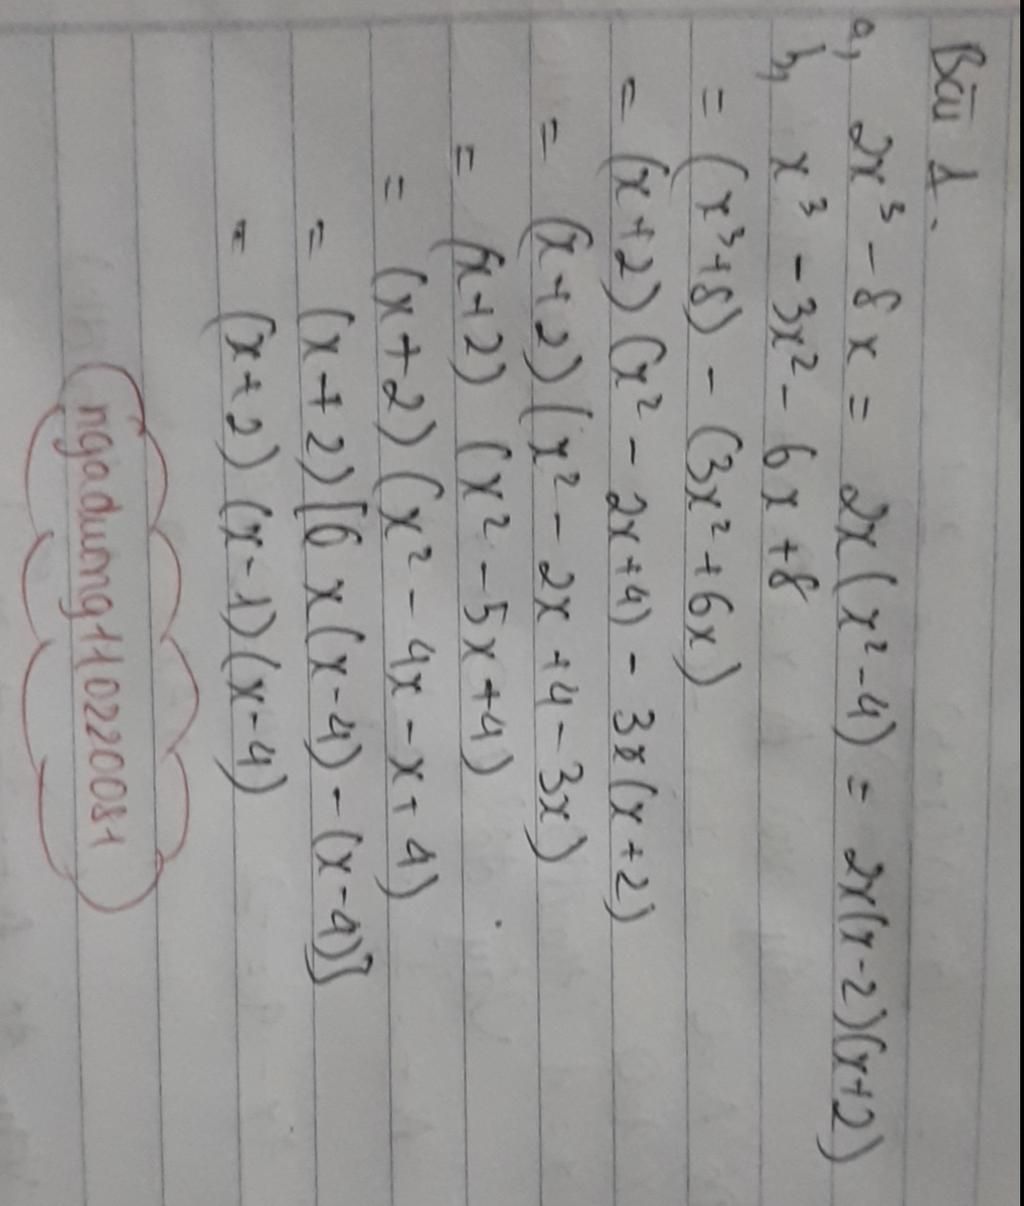 Bài 1.
a, 2x³ - 8x = 2x(x² - 4) = 2x(x-2)(x+2)
b, x³ - 3x² - 6x + 8
= (x³+8) - (3x² + 6x)
= (x+2)(x² - 2x+4) - 3x(x+2)
= (x+2)(x² - 2x + 4 - 3x)
= (x+2) (x² - 5x + 4)
= (x+2)(x² - 4x - x + 4)
= (x+2)[6 x(x-4) - (x-4)]
= (x+2)(x-1)(x-4)
ngadung110220081